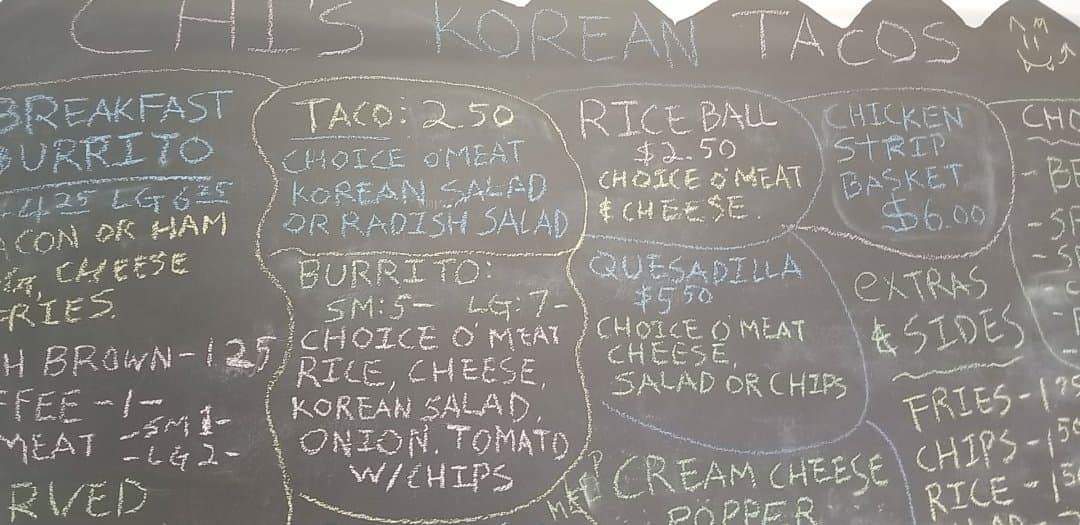 CHI'S KOREAN TACOS
BREAKFAST
BURRITO
4.25 LG 6.25
ACON OR HAM
CHEESE
FRIES
H BROWN - 1.25
FFEE - 1-
MEAT - SM 1-
- LG 2-
RVED
TACO: 2.50
CHOICE O'MEAT
KOREAN SALAD
OR RADISH SALAD
BURRITO:
SM: 5- LG: 7-
CHOICE O'MEAT
RICE, CHEESE,
KOREAN SALAD,
ONION. TOMATO
W/CHIPS
RICE BALL
$2.50
CHOICE O'MEAT
& CHEESE.
QUESADILLA
$5.50
CHOICE O'MEAT
CHEESE,
SALAD OR CHIPS
CREAM CHEESE
POPPER
CHICKEN
STRIP
BASKET
$6.00
EXTRAS
& SIDES
FRIES - 1.75
CHIPS - 1.50
RICE - 1.50
CHO
- BE
- SP